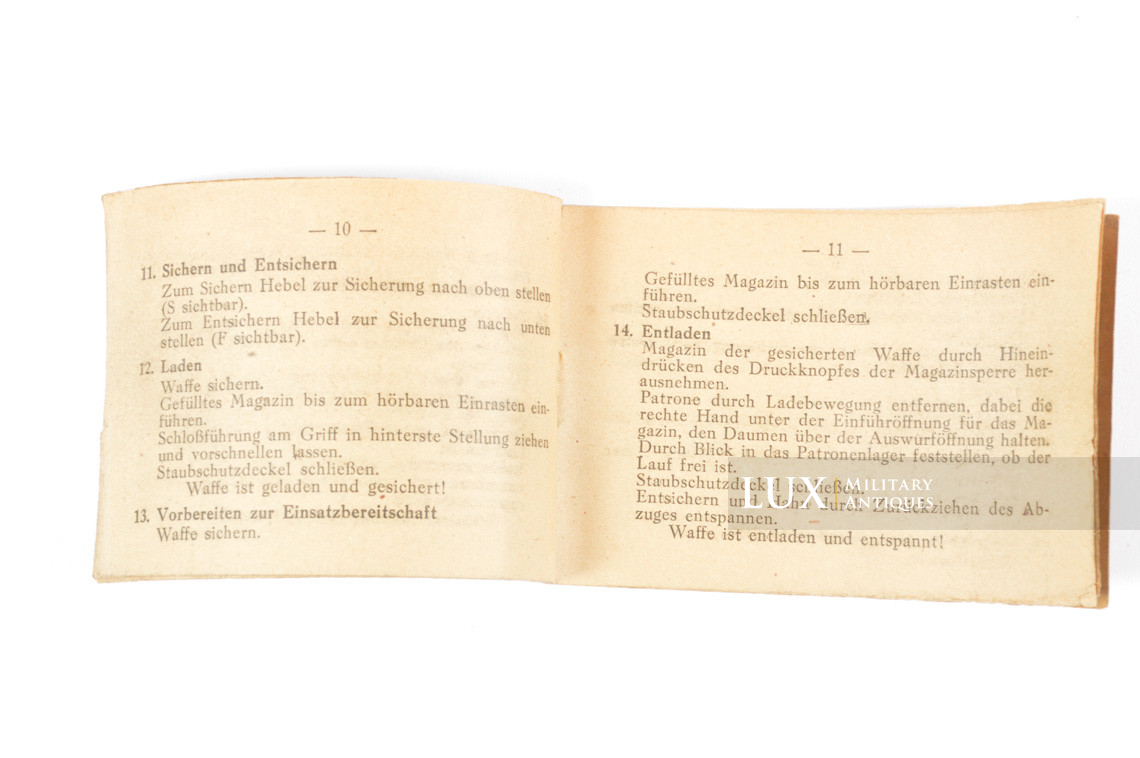 — 10 —
11. Sichern und Entsichern
Zum Sichern Hebel zur Sicherung nach oben stellen
(S sichtbar).
Zum Entsichern Hebel zur Sicherung nach unten
stellen (F sichtbar).
12. Laden
Waffe sichern.
Gefülltes Magazin bis zum hörbaren Einrasten ein-
führen.
Schloßführung am Griff in hinterste Stellung ziehen
und vorschnellen lassen.
Staubschutzdeckel schließen.
Waffe ist geladen und gesichert!
13. Vorbereiten zur Einsatzbereitschaft
Waffe sichern.
— 11 —
Gefülltes Magazin bis zum hörbaren Einrasten ein-
führen.
Staubschutzdeckel schließen.
14. Entladen
Magazin der gesicherten Waffe durch Hinein-
drücken des Druckknopfes der Magazinsperre her-
ausnehmen.
Patrone durch Ladebewegung entfernen, dabei die
rechte Hand unter der Einführöffnung für das Ma-
gazin, den Daumen über der Auswurföffnung halten.
Durch Blick in das Patronenlager feststellen, ob der
Lauf frei ist.
Staubschutzdeckel schließen.
Entsichern und Hahn durch Zurückziehen des Ab-
zuges entspannen.
Waffe ist entladen und entspannt!
LUX MILITARY
ANTIQUES